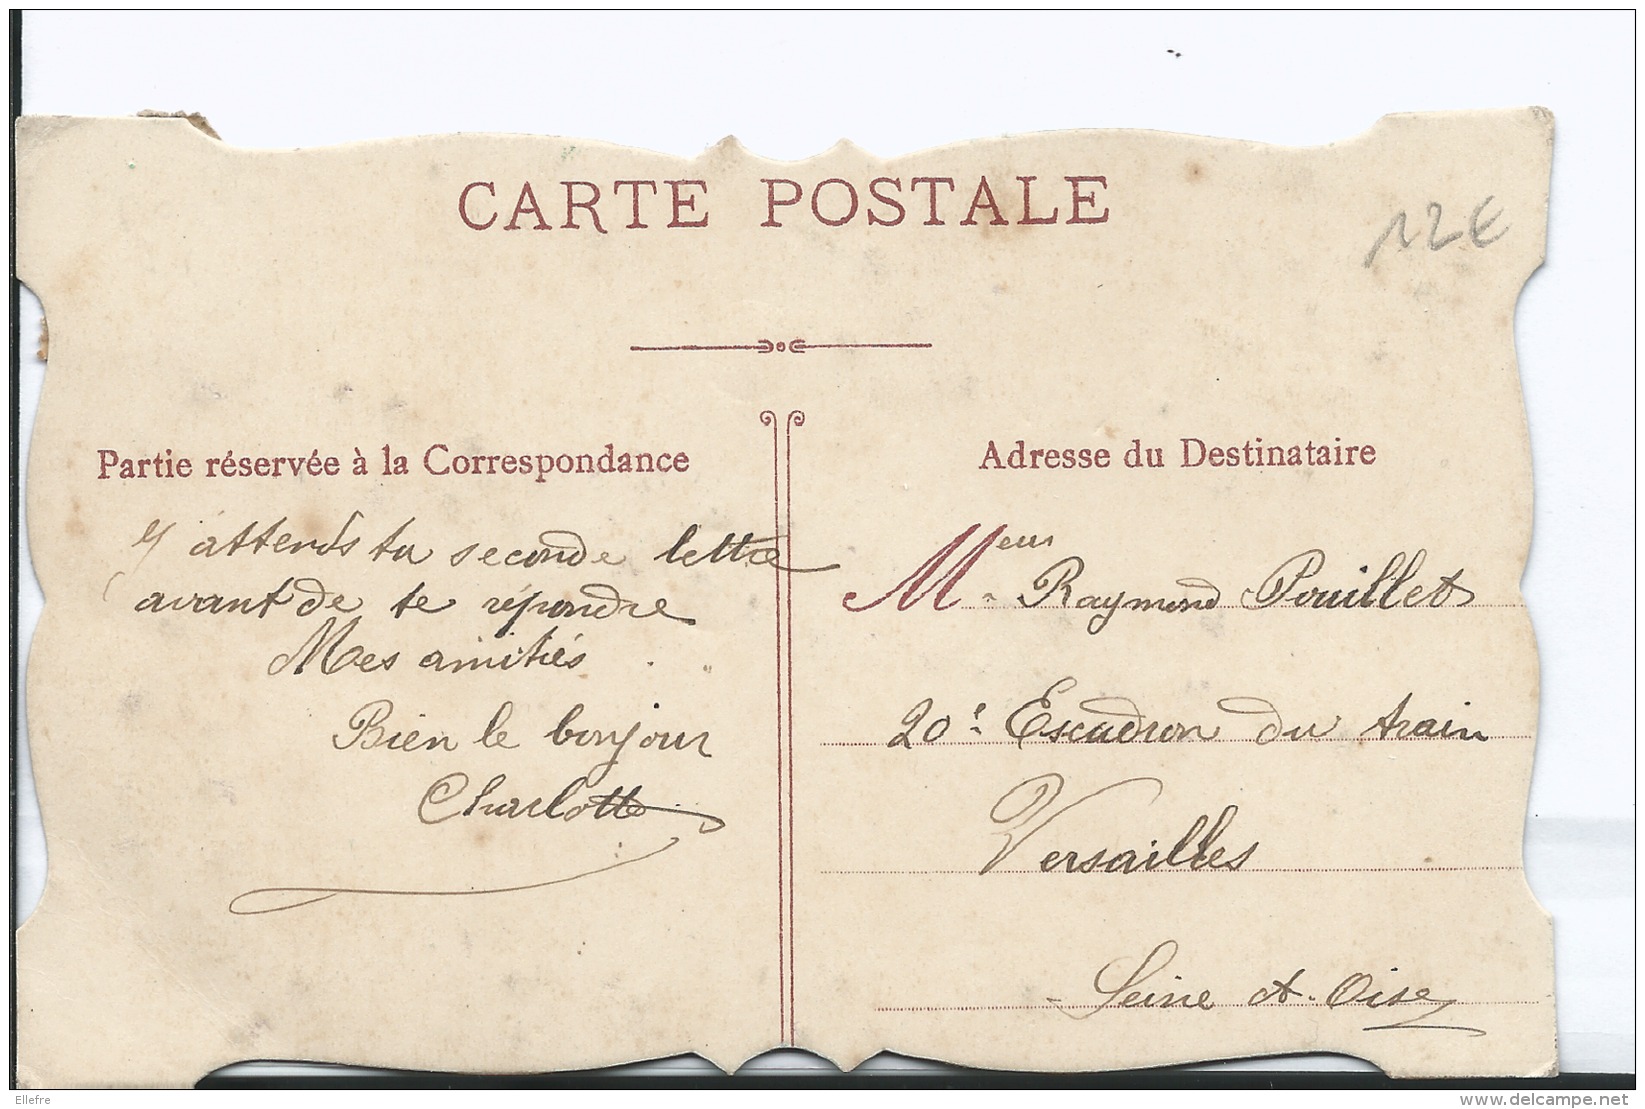 CARTE POSTALE
12€
Partie réservée à la Correspondance
J'attends ta seconde lettre
avant de te répondre
Mes amitiés
Bien le bonjour
Charlotte
Adresse du Destinataire
Meur Raymond Pouillet
20e Escadron du train
Versailles
Seine et Oise
Ellefre
delcampe.net